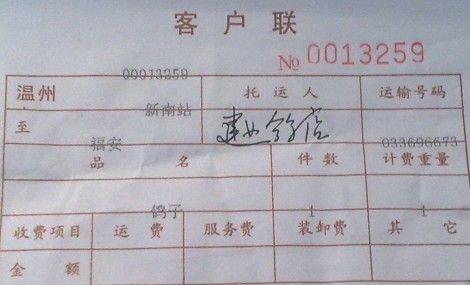 客户联
№ 0013259
00013259
温州 托运人 运输号码
新南站
至
福安 033696673
品名 件数 计费重量
鸽子 1 1
收费项目 运费 服务费 装卸费 其它
金额